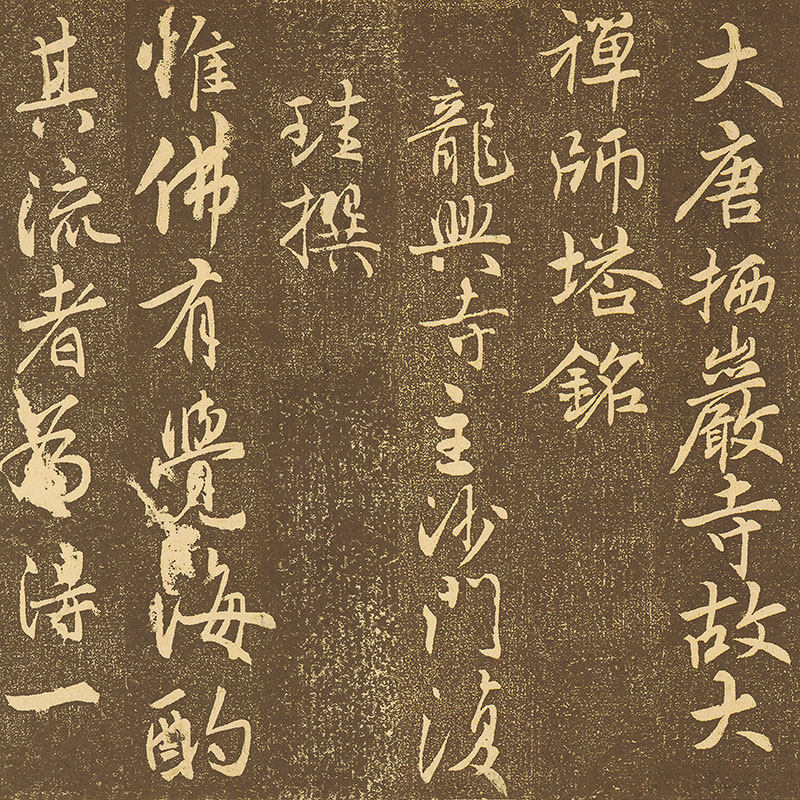 大唐栖巖寺故大
禪師塔銘
龍興寺主沙門復
珪撰
惟佛有覺海酌
其流者當得一